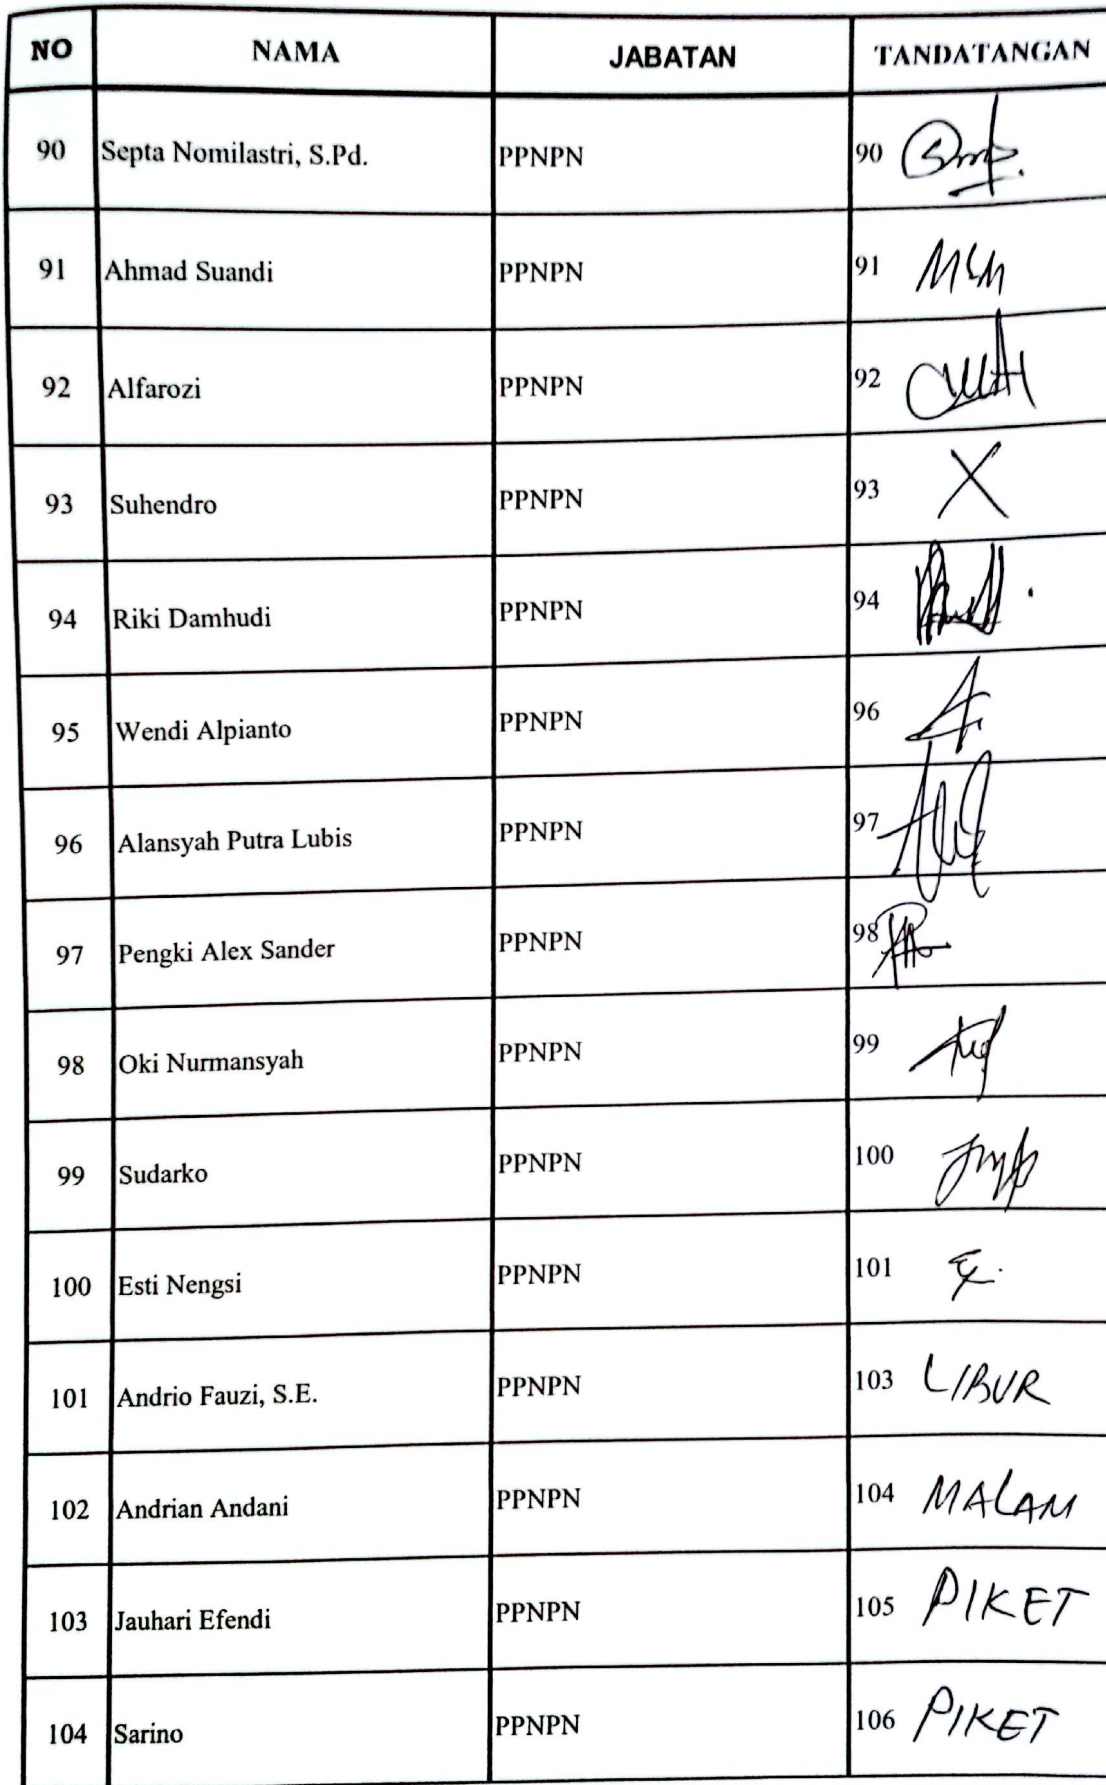 NO NAMA JABATAN TANDATANGAN
90 Septa Nomilastri, S.Pd. PPNPN 90
91 Ahmad Suandi PPNPN 91
92 Alfarozi PPNPN 92
93 Suhendro PPNPN 93 X
94 Riki Damhudi PPNPN 94
95 Wendi Alpianto PPNPN 96
96 Alansyah Putra Lubis PPNPN 97
97 Pengki Alex Sander PPNPN 98
98 Oki Nurmansyah PPNPN 99
99 Sudarko PPNPN 100
100 Esti Nengsi PPNPN 101
101 Andrio Fauzi, S.E. PPNPN 103 LIBUR
102 Andrian Andani PPNPN 104 MALAM
103 Jauhari Efendi PPNPN 105 PIKET
104 Sarino PPNPN 106 PIKET